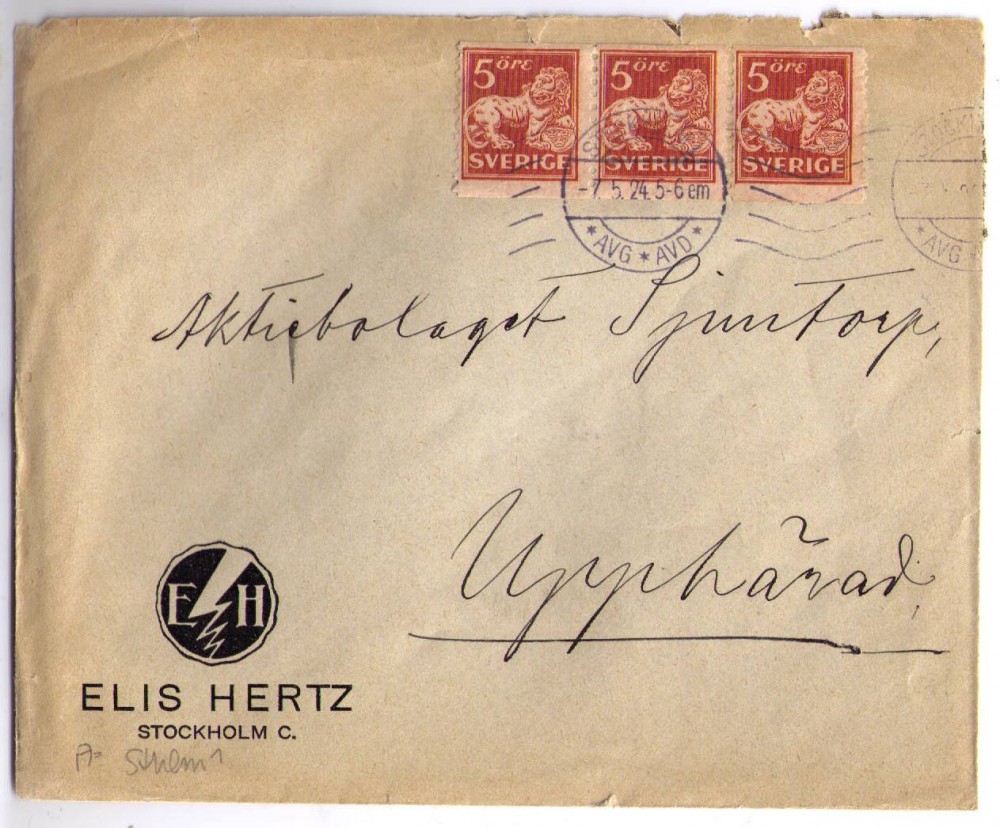 5 öre 5 öre 5 öre
SVERIGE SVERIGE SVERIGE
-7.5.24.5-6 em
* AVG * AVD *
STOCK
* AVG
Aktiebolaget Sjuntorp,
Upphärad.
E H
ELIS HERTZ
STOCKHOLM C.